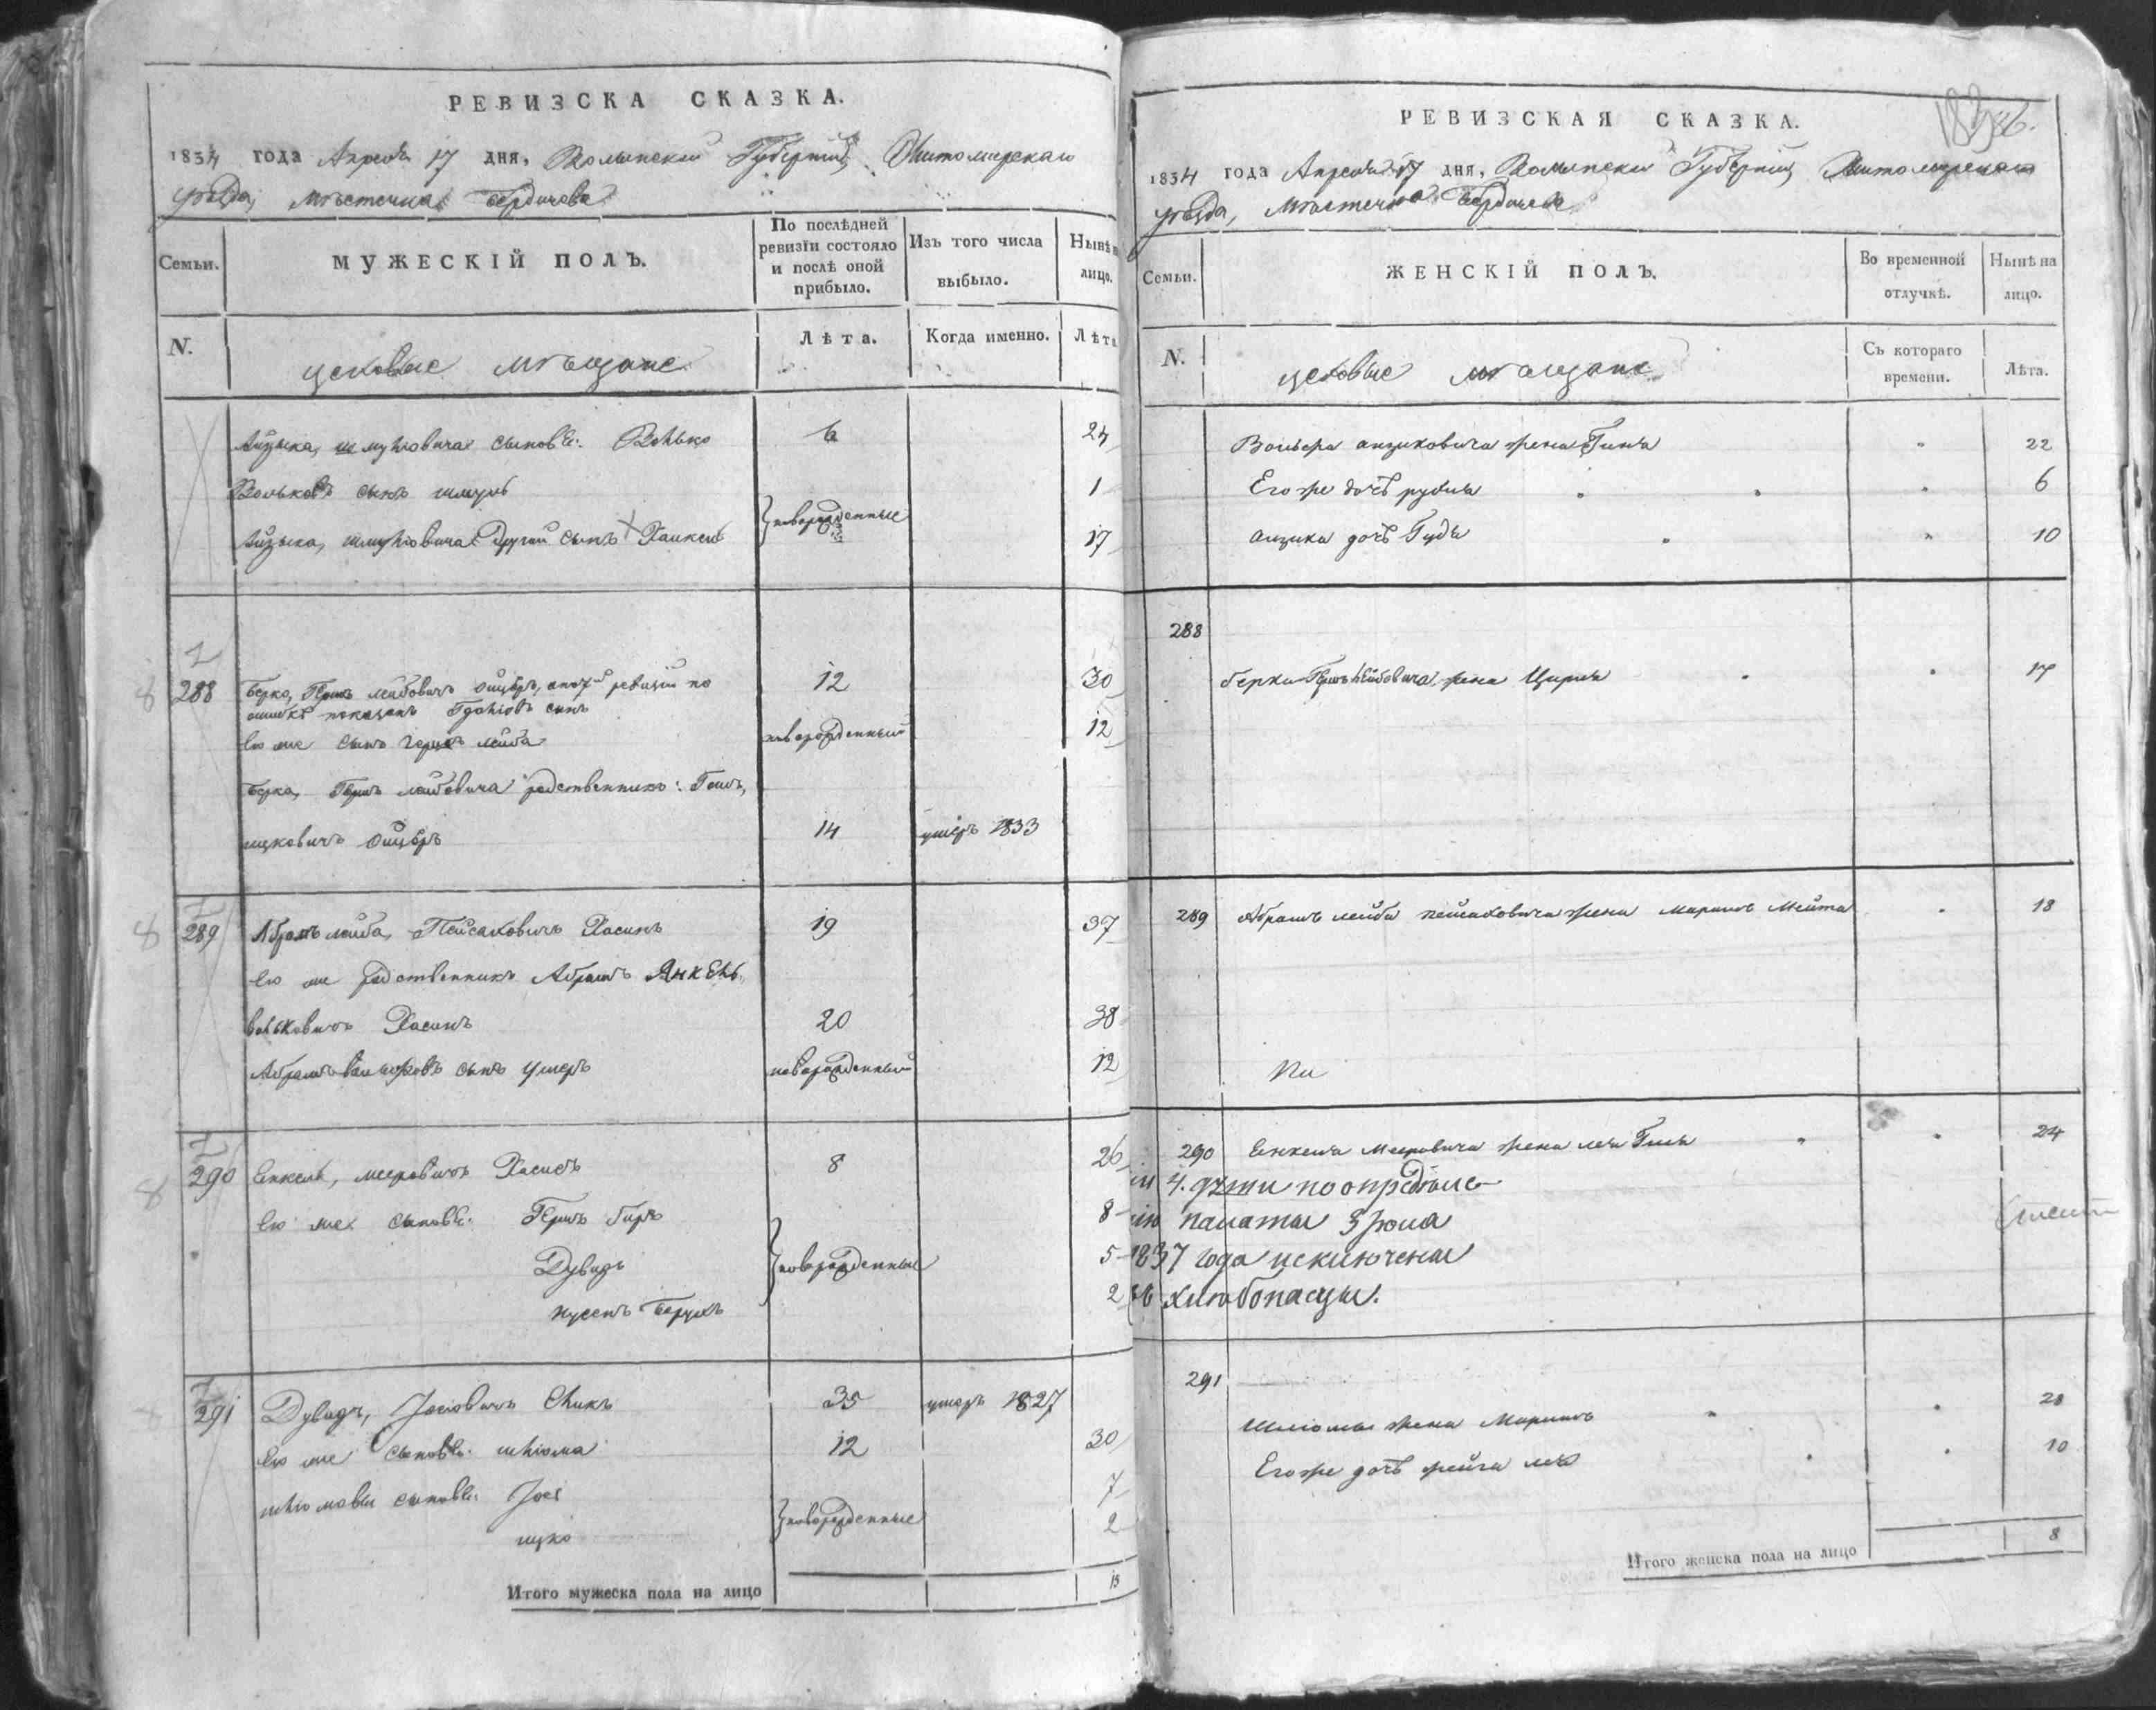 РЕВИЗСКА СКАЗКА.
1834 года Апреля 17 дня, Волынской Губерніи, Житомирскаго
уѣзда, мѣстечка Бердичева
Семьи.
МУЖЕСКІЙ ПОЛЪ.
По послѣдней
ревизіи состояло
и послѣ оной
прибыло.
Изъ того числа
выбыло.
Нынѣ на
лицо.
N.
цеховые мѣщане
Лѣта.
Когда именно.
Лѣта
Айзыка, шмулiовича сыновья: Волько 6 24
Вольковъ сынъ шмуль 1
новорожденные
Айзыка, шмулiовича другой сынъ Хаикель 17
288 Берко, Гершъ лейбовичъ ойцеръ, по 7й ревизіи по 12 30
ошибкѣ показанъ сынъ
его же сынъ лейба новорожденный 12
Берка, Гершъ лейбовича родственникъ:
ицковичъ ойцеръ 14 умеръ 1833
289 Абрамъ лейба, Пейсаховичъ Хасинъ 19 37
его же родственникъ Абрамъ Янкель
вольковичъ Хасинъ 20 38
Абрамъ сынъ новорожденный 12
290 Енкель, мееровичъ Хасинъ 8 26
его же сыновья: Гершъ беръ 8
Дувидъ новорожденные 5
нусенъ Берухъ 2
291 Дувидъ, Іосiовичъ 35 умеръ 1827
его же сыновья: шліома 12 30
шліомовы сыновья: Іось 7
новорожденные
ицко 2
Итого мужеска пола на лицо 15
РЕВИЗСКАЯ СКАЗКА.
1834 года Апреля 17 дня, Волынской Губерніи, Житомирскаго
уѣзда, Мѣстечка Бердичева
Семьи.
ЖЕНСКІЙ ПОЛЪ.
Во временной
отлучкѣ.
Нынѣ на
лицо.
N.
цеховые мѣщане
Съ котораго
времени.
Лѣта.
Вольера айзиковича жена Гиня 22
Его же дочь рухля 6
айзика дочь Гудя 10
288
берки Гершъ лейбовича жена Цирля 17
289 Абрамъ лейба пейсаховича жена Маримъ Мейта 18
290 Енкеля Мееровича жена лея Гиля 24
4. дѣти по опредѣле-
нію палаты 3 іюля
1837 года исключены
въ хлѣбопасцы.
291
Шліомы жена Маримъ 28
Его же дочь фейга лея 10
Итого женска пола на лицо 8